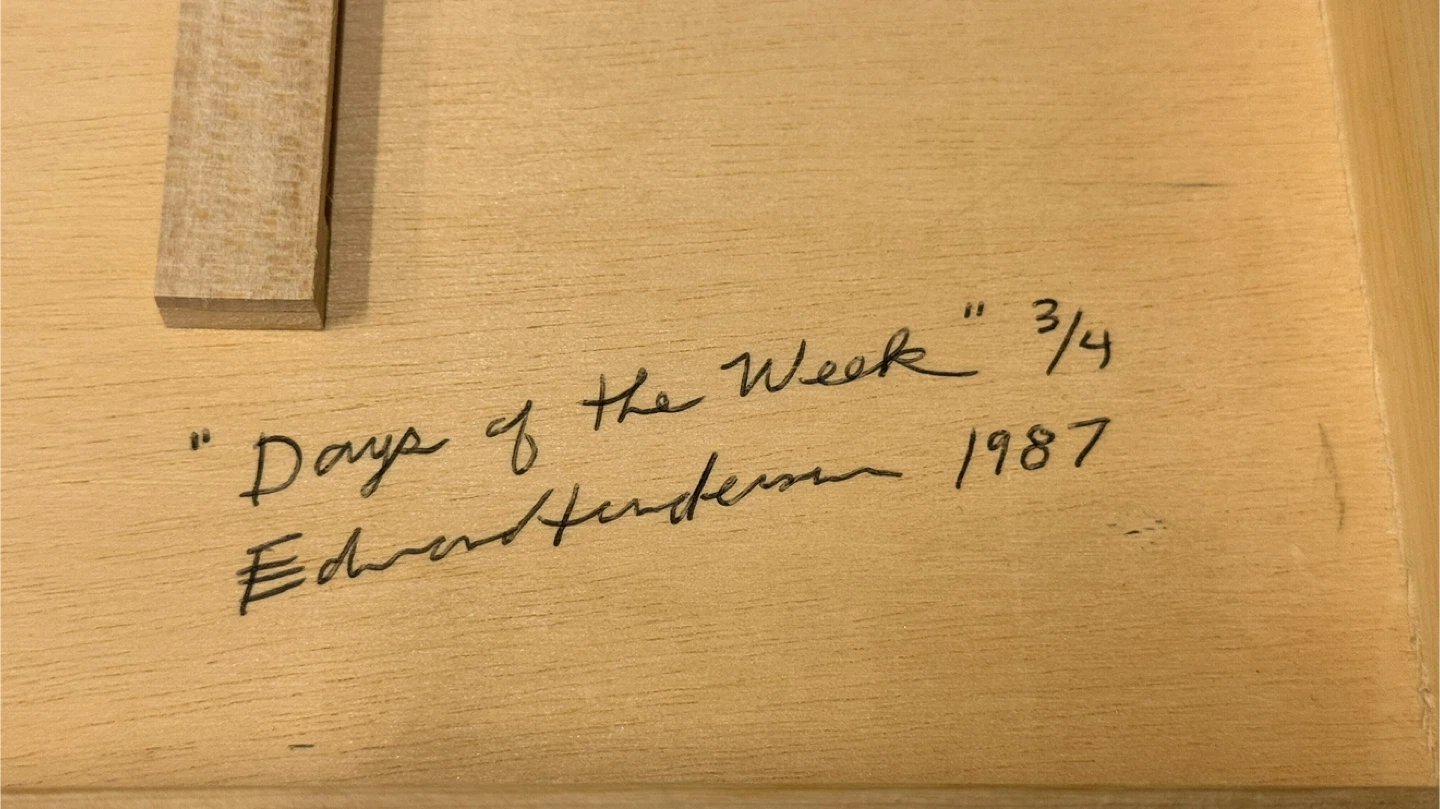 "Days of the Week" 3/4
Edward Henderson 1987